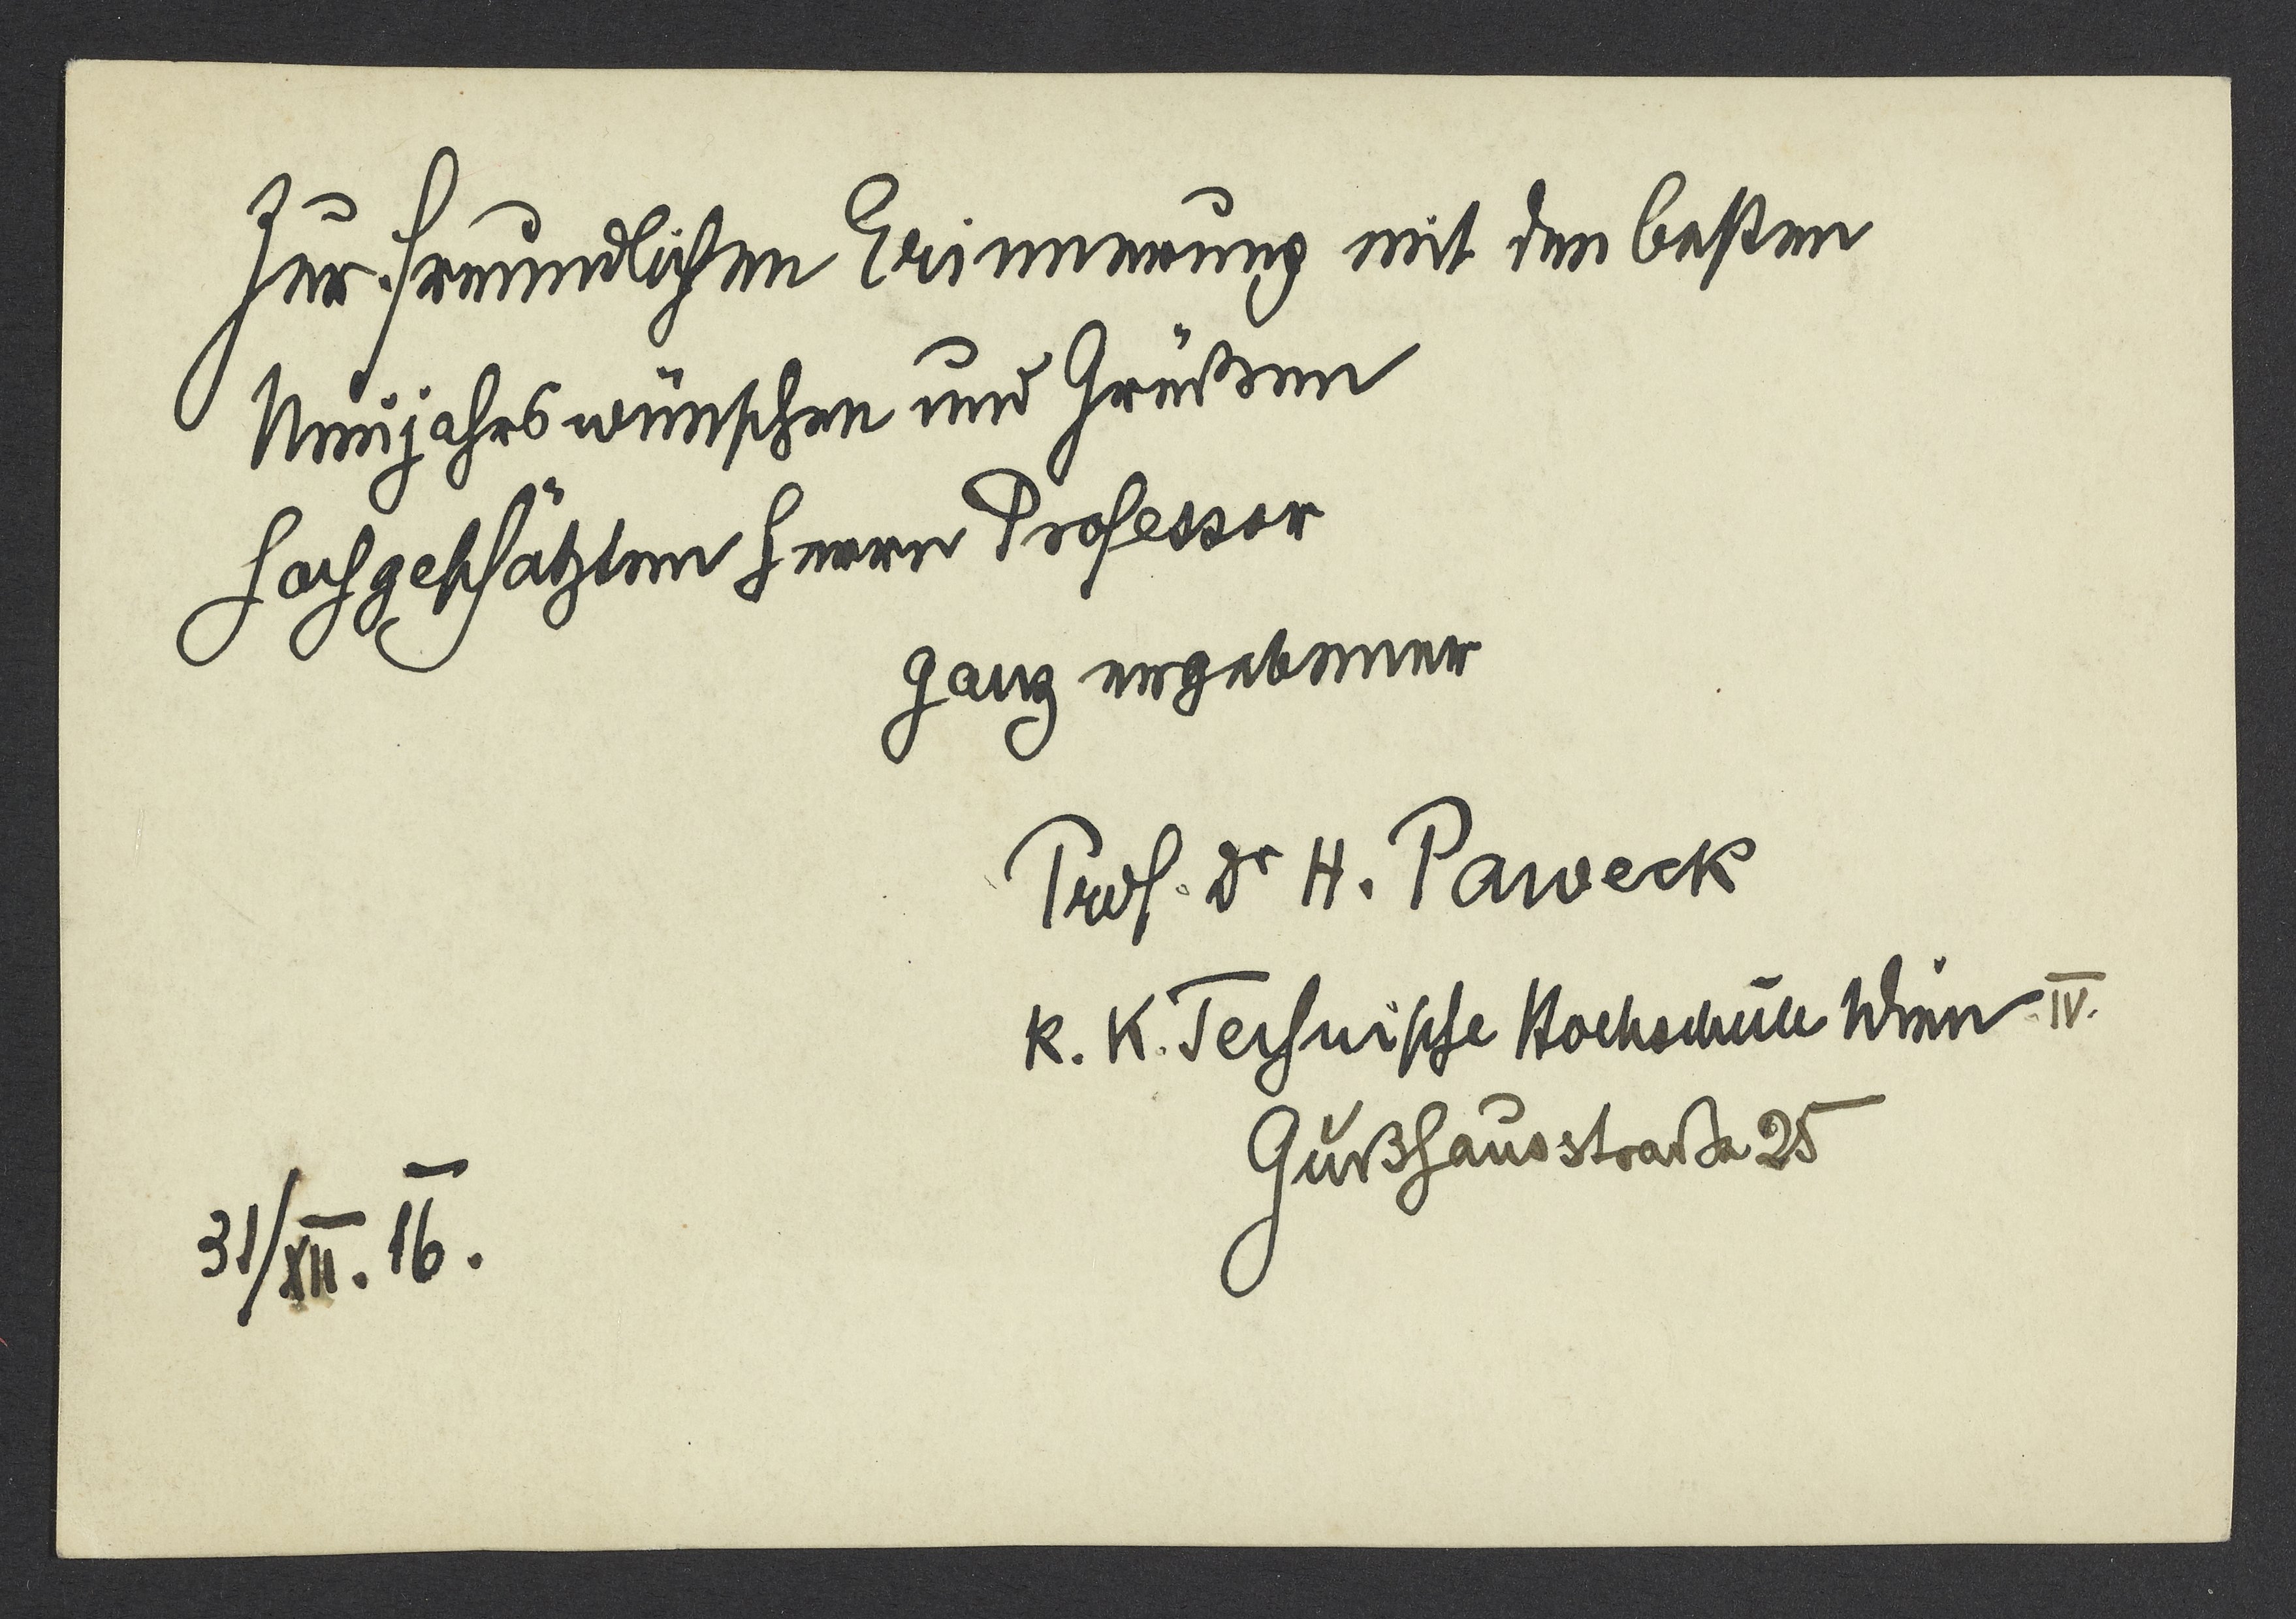 Zur freundlichen Erinnerung mit den besten
Neujahrswünschen und Grüßen
hochgeschätzten Herrn Professor
ganz ergebener
Prof. Dr H. Paweck
K. K. Technische Hochschule Wien IV.
Gußhausstraße 25
31/XII. 16.